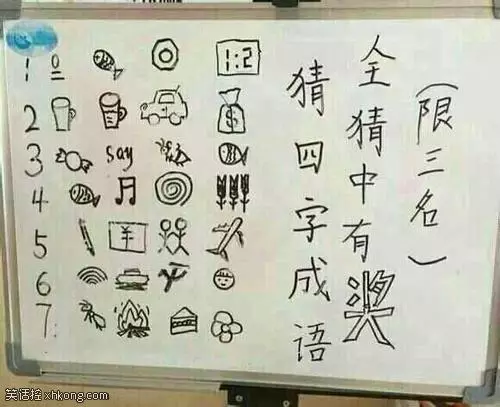 (限三名)
全猜中有奖
猜四字成语
1 º 1:2
2 $
3 say
4
5 ¥
6
7:
笑话控 xhkong.com